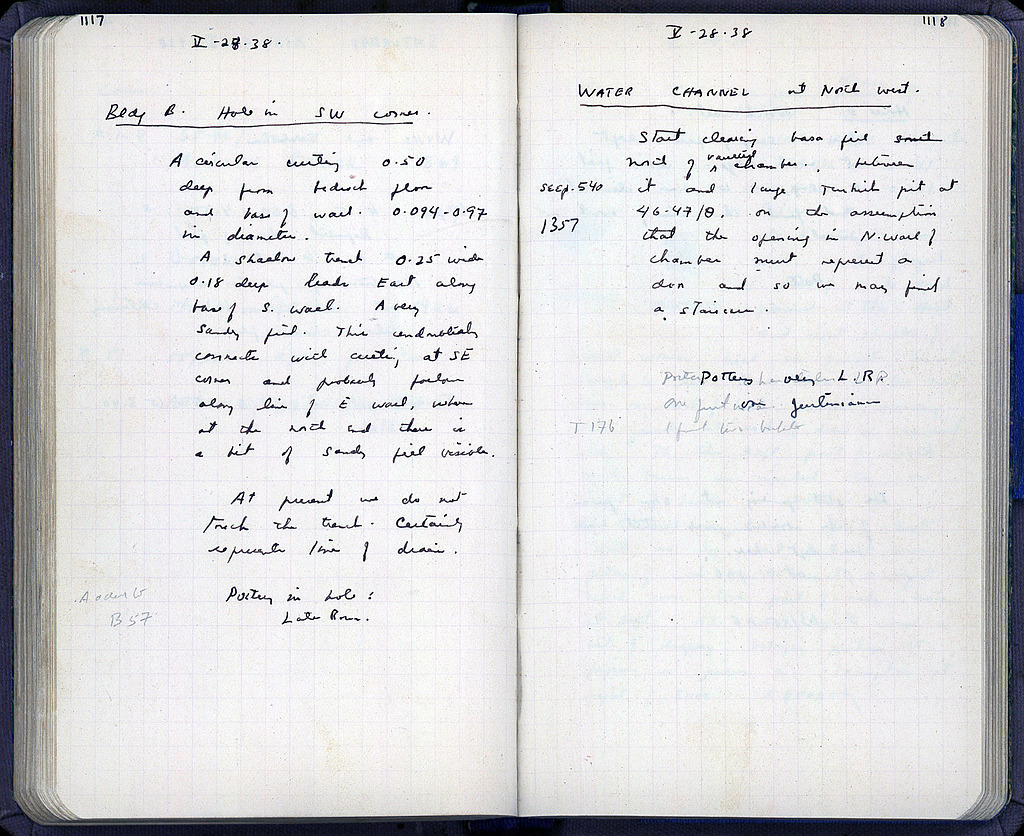 1117
V-28-38.
Bldg B. Hole in SW corner.
A circular cutting 0.50
deep from bedrock floor
and base of wall. 0.094-0.97
in diameter.
A shallow trench 0.25 wide
0.18 deep leads East along
base of S. wall. A very
sandy fill. This undoubtedly
connects with cutting at SE
corner and probably
along line of E wall, where
at the north end there is
a bit of sandy fill visible.
At present we do not
touch the trench. Certainly
represents line of drain.
Pottery in hole:
Late Rom.
B 57
1118
V-28-38
WATER CHANNEL at North west.
Start clearing fill
north of vaulted chamber, between
see p. 540
it and large Turkish pit at
1357
46-47/Θ. on the assumption
that the opening in N. wall of
chamber must represent a
door and so we may find
a staircase.
Pottery very L.R.
Justinian
T 176